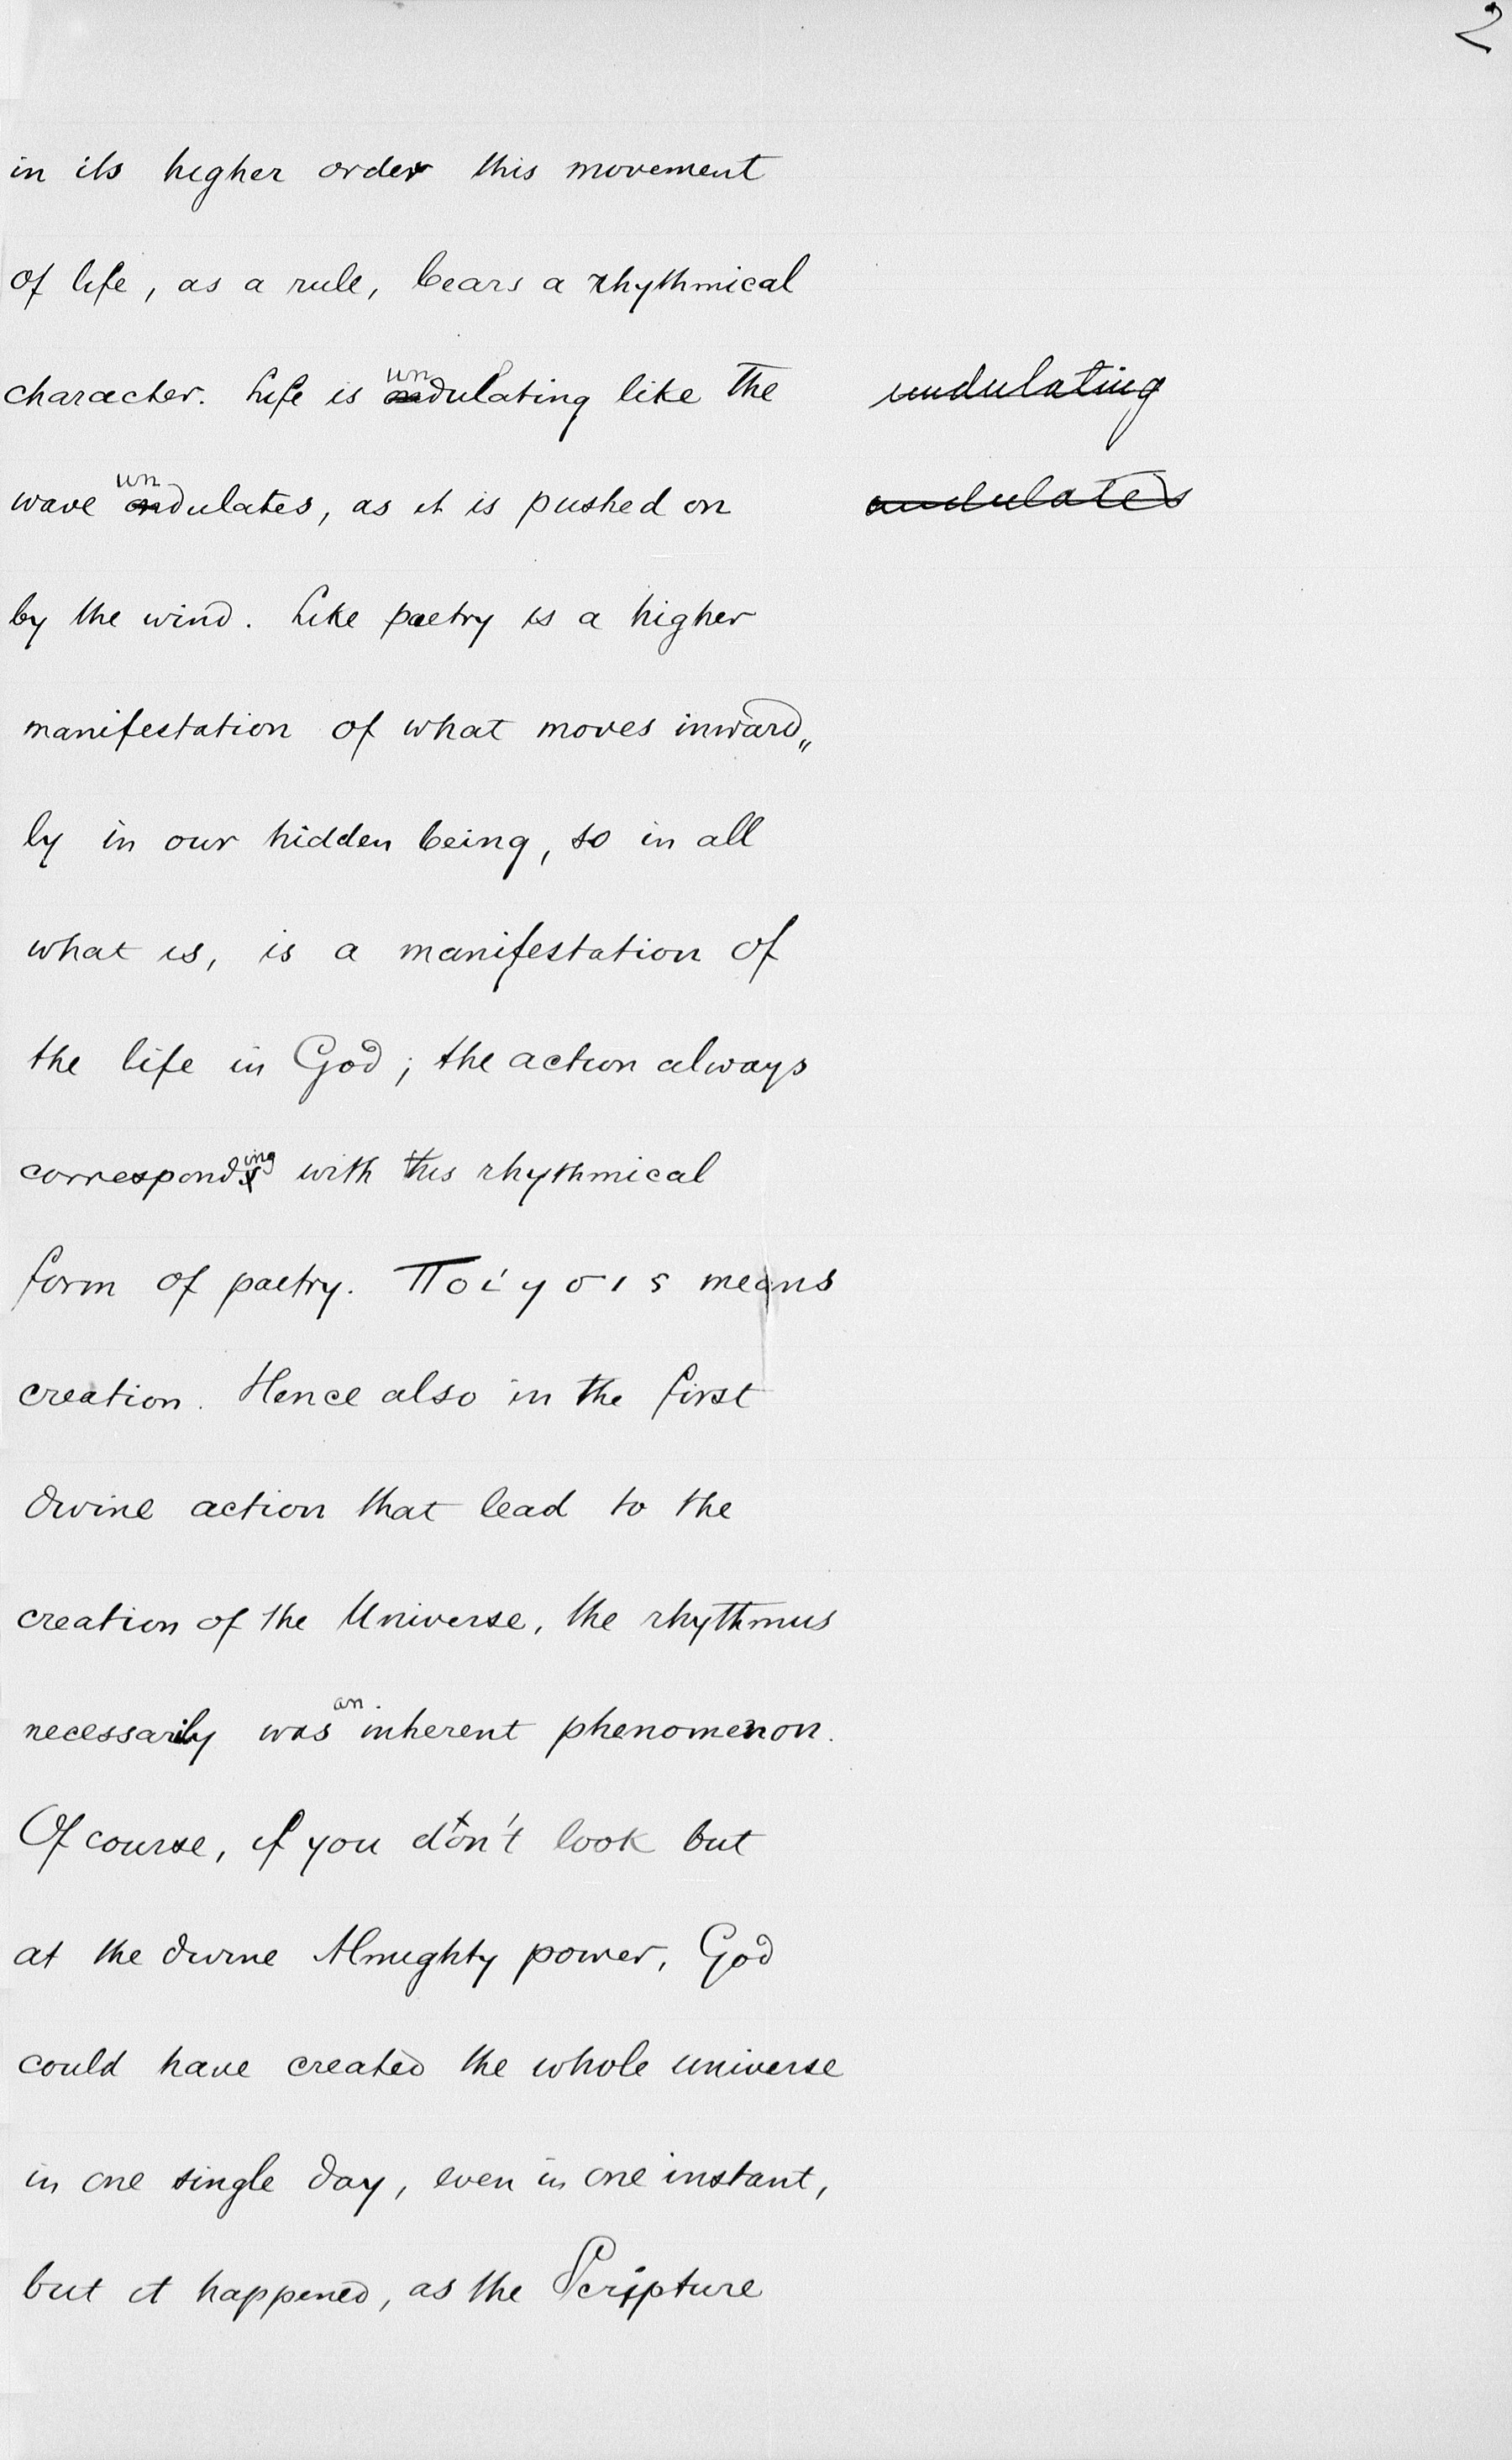 2
in its higher order this movement
of life, as a rule, bears a rhythmical
character. Life is undulating like the undulating
wave undulates, as it is pushed on undulates
by the wind. Like poetry is a higher
manifestation of what moves inward„
ly in our hidden being, so in all
what is, is a manifestation of
the life in God; the action always
corresponding with this rhythmical
form of poetry. Ποίησις means
creation. Hence also in the first
divine action that lead to the
creation of the Universe, the rhythmus
necessarily was an inherent phenomenon.
Of course, if you don't look but
at the divine Almighty power, God
could have created the whole universe
in one single day, even in one instant,
but it happened, as the Scripture